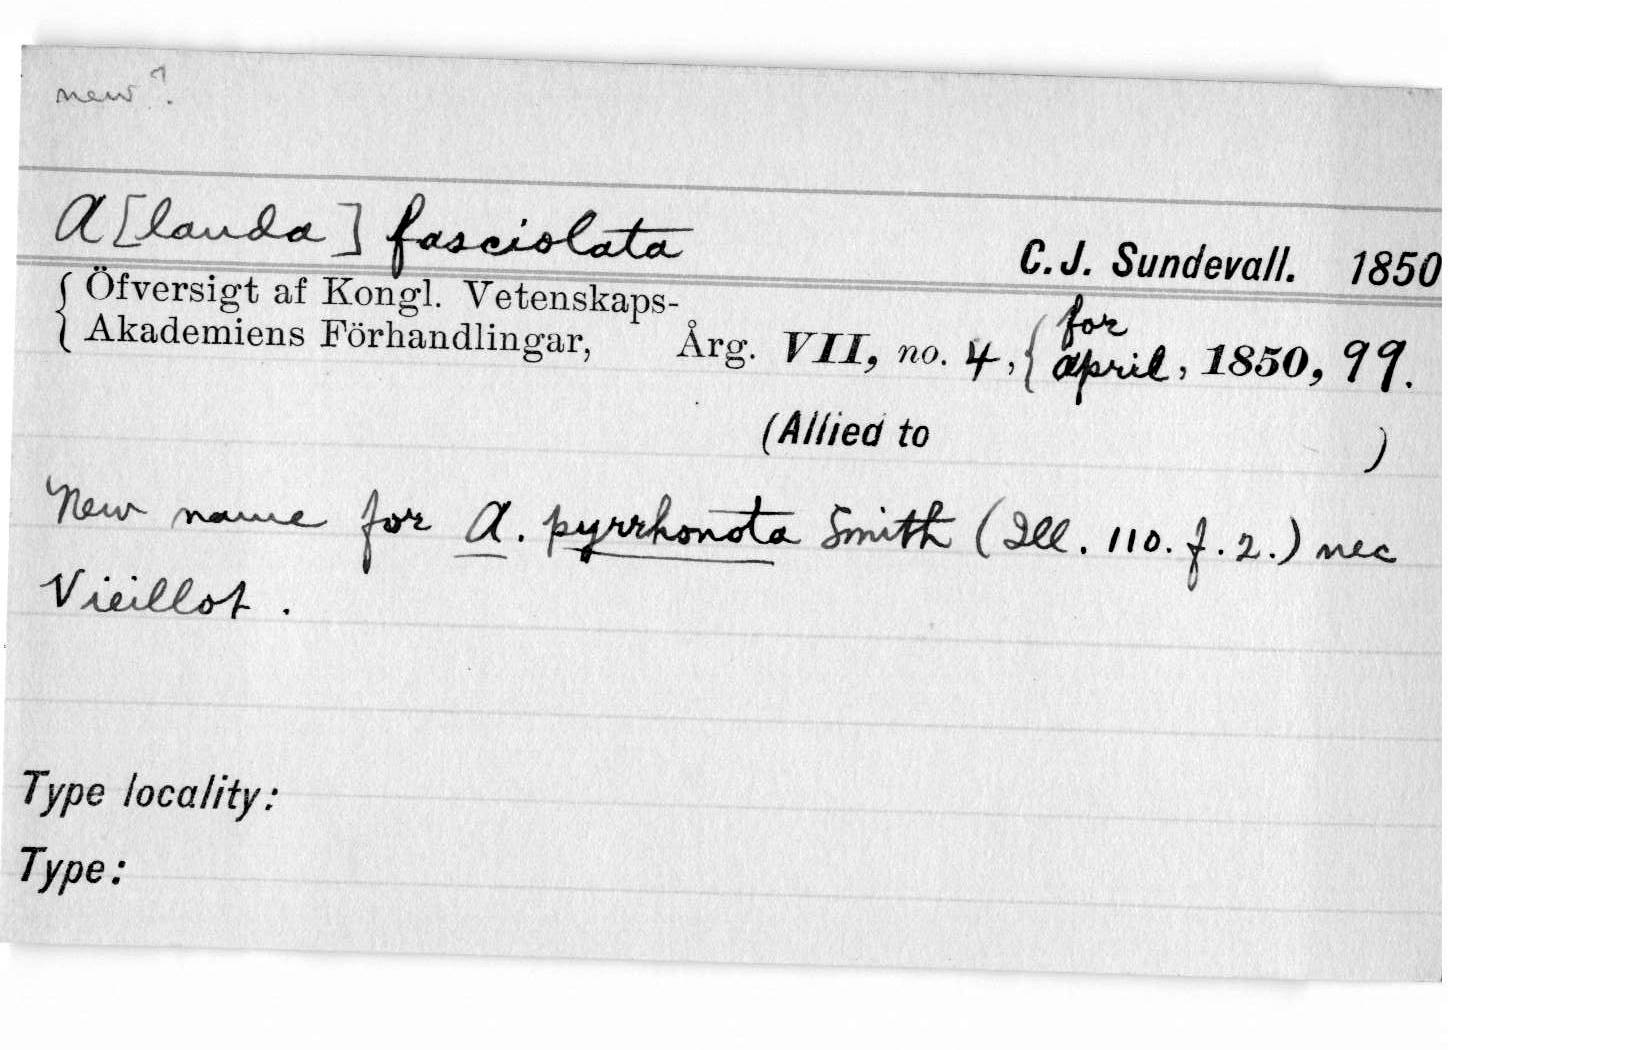 new?
A[lauda] fasciolata C. J. Sundevall. 1850
{ Öfversigt af Kongl. Vetenskaps-
Akademiens Förhandlingar, Årg. VII, no. 4, { for april, 1850, 99.
(Allied to )
New name for A. pyrrhonota Smith (Ill. 110. f. 2.) nec
Vieillot.
Type locality:
Type: